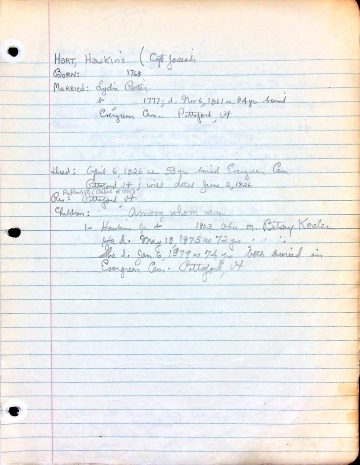 HART, Hawkins (Capt Josiah
BORN: 1768
MARRIED: Lydia
b 1777; d. Nov 6, 1861 ae 84 yrs buried
Evergreen Cem. Pittsford, Vt
Died: April 6, 1826 ae 58 yrs buried Evergreen Cem
Pittsford Vt; will dated June 2, 1826
Res: Pittsford, Vt
Children: Among whom were
1- Hawkins Jr b 1803 m. Betsey Keeler
He d. May 18, 1875 ae 72 yrs
She d. Jan 6, 1879 ae 74 yrs both buried in
Evergreen Cem. Pittsford, Vt.